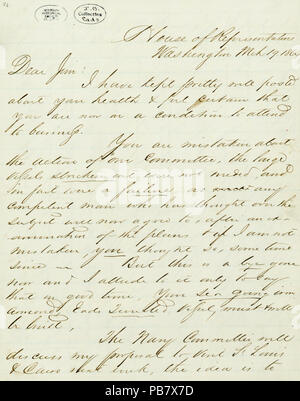 House of Representatives
Washington Mch 19
Dear Jim:
I have kept pretty well posted
about your health & feel certain that
you are now in a condition to attend
to business.
You are mistaken about
the action of our Committee, the large
vessels were not needed and
in fact were a failure, as any
competent man who has thought over the
subject will now agree to after an ex-
amination of the plans & if I am not
mistaken, you thought so, some time
since. But this is a bye gone
now and I allude to it only to say
that in good time, your sea going iron
vessel, must
The Navy Committee will
discuss my proposal to visit St Louis
& Cairo next week, the idea is to
alamy
PB7X7D